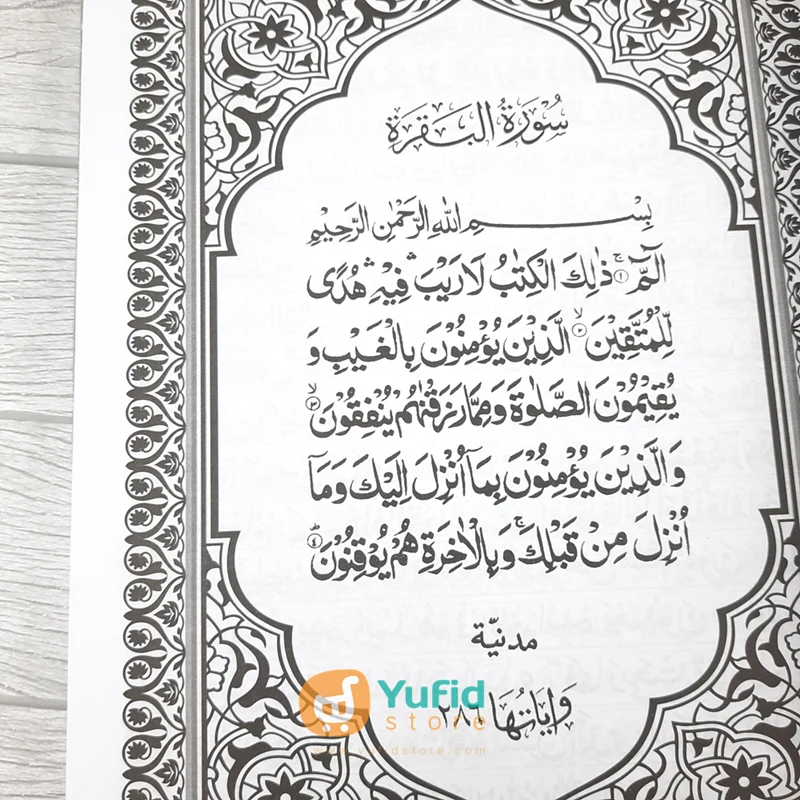 سُوْرَةُ الْبَقَرَةِ
بِسْمِ اللهِ الرَّحْمٰنِ الرَّحِيْمِ
الٓمّٓ ۚ ﴿١﴾ ذٰلِكَ الْكِتٰبُ لَا رَيْبَ ۛ فِيْهِ ۛ هُدًى
لِّلْمُتَّقِيْنَ ۙ ﴿٢﴾ الَّذِيْنَ يُؤْمِنُوْنَ بِالْغَيْبِ وَ
يُقِيْمُوْنَ الصَّلٰوةَ وَمِمَّا رَزَقْنٰهُمْ يُنْفِقُوْنَ ۙ ﴿٣﴾
وَالَّذِيْنَ يُؤْمِنُوْنَ بِمَآ اُنْزِلَ اِلَيْكَ وَمَآ
اُنْزِلَ مِنْ قَبْلِكَ ۚ وَبِالْاٰخِرَةِ هُمْ يُوْقِنُوْنَ ۗ ﴿٤﴾
مدنيّة
وَاٰيَاتُهَا ٢٨٦
Yufid
store
www.yufidstore.com